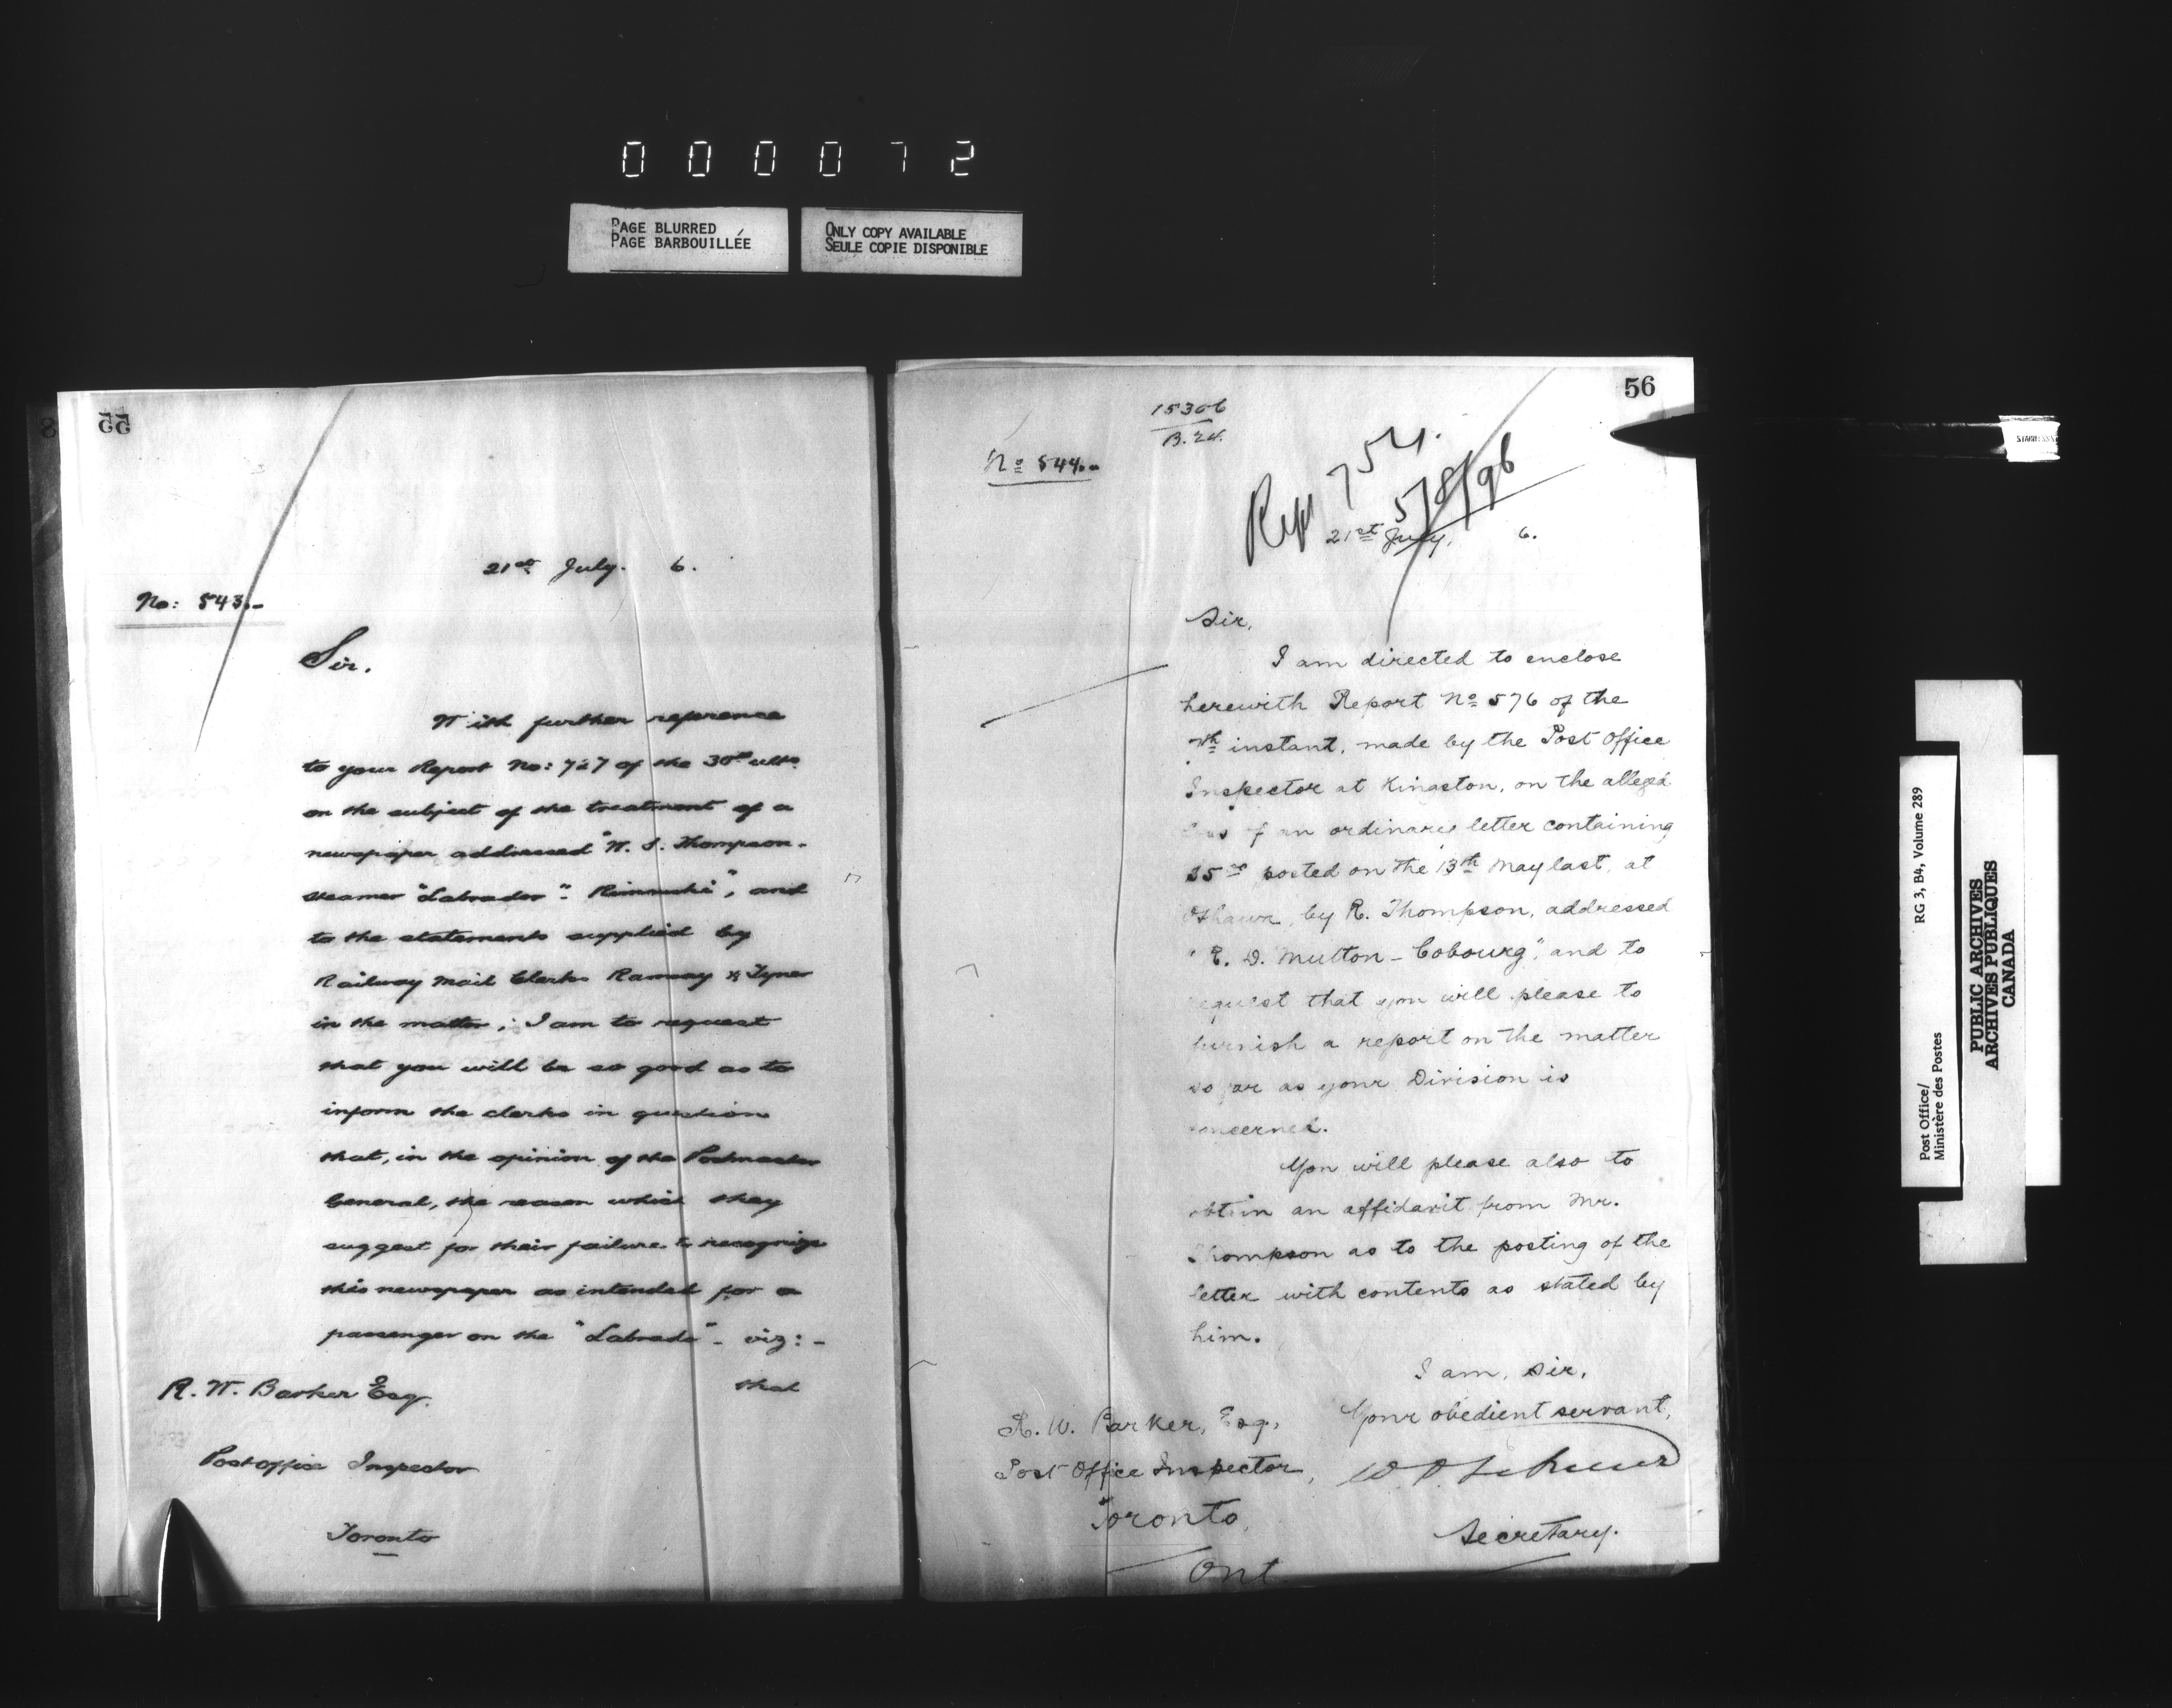 000072
PAGE BLURRED
PAGE BARBOUILLÉE
ONLY COPY AVAILABLE
SEULE COPIE DISPONIBLE
55
21st July. 6.
No: 543.-
Sir.
With further reference
to your Report No: 727 of the 30th ulto.
on the subject of the treatment of a
newspaper addressed "W. S. Thompson-
steamer "Labrador"- Rimouski", and
to the statements supplied by
Railway Mail Clerks Ramsay & Tyner
in the matter; I am to request
that you will be so good as to
inform the clerks in question
that, in the opinion of the Postmaster
General, the reason which they
suggest for their failure to recognize
this newspaper as intended for a
passenger on the "Labrador"- viz:-
that
R. W. Barker Esq.
Post office Inspector
Toronto
56
15306
No 544.-
Rept 754.
5/8/96
21st July. 6.
Sir,
I am directed to enclose
herewith Report No 576 of the
instant, made by the Post Office
Inspector at Kingston, on the alleged
loss of an ordinary letter containing
posted on the 13th May last, at
Oshawa, by R. Thompson, addressed
D. Mutton - Cobourg", and to
request that you will please to
furnish a report on the matter
so far as your Division is
concerned.
You will please also to
obtain an affidavit from Mr.
Thompson as to the posting of the
letter with contents as stated by
him.
I am, Sir,
Your obedient servant,
R. W. Barker, Esq.,
Post Office Inspector,
Toronto,
Ont
Secretary.
Post Office/
Ministère des Postes
RG 3, B4, Volume 289
PUBLIC ARCHIVES
ARCHIVES PUBLIQUES
CANADA